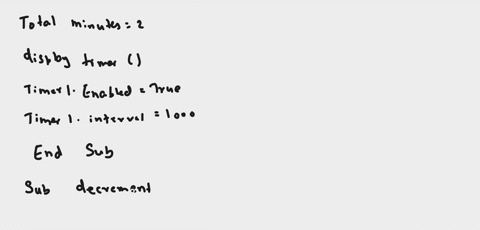 Total minutes = 2
display timer ()
Timer1. Enabled = True
Timer 1. interval = 1000
End Sub
Sub decrement